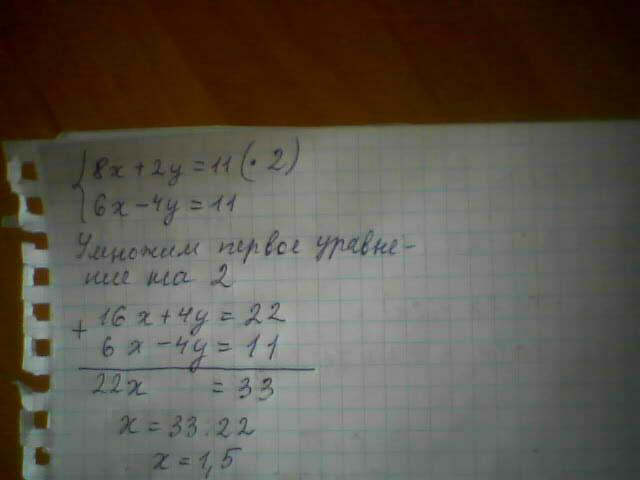 8x+2y=11(·2)
6x-4y=11
Умножим первое уравне-
ние на 2
16x+4y=22
+
6x-4y=11
22x =33
x=33:22
x=1,5